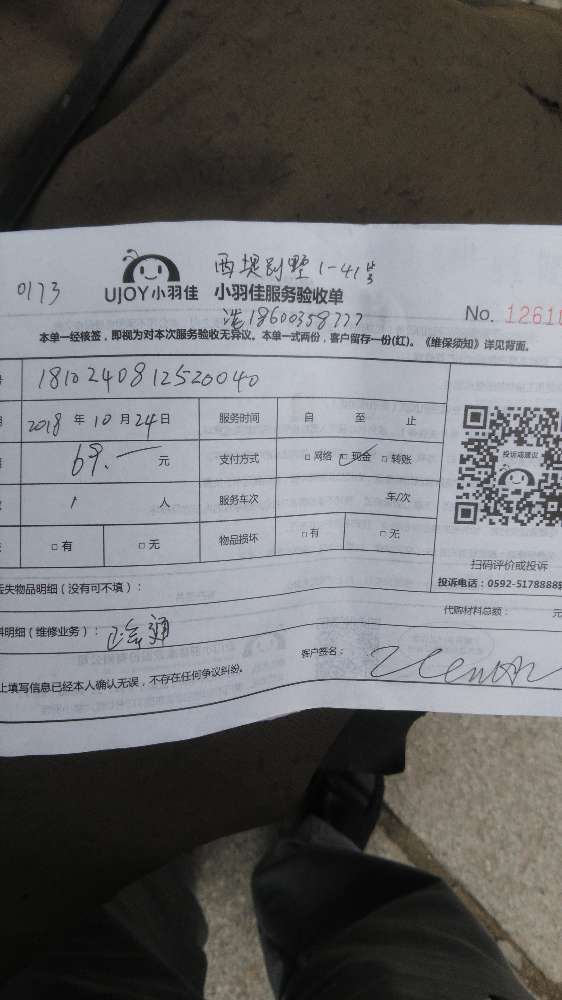 西堤别墅1-41号
0173 UJOY小羽佳 小羽佳服务验收单
18600358777
No. 12610
本单一经核签，即视为对本次服务验收无异议。本单一式两份，客户留存一份(红)。《维保须知》详见背面。
1810240812520040
2018 年 10 月 24 日 服务时间 自 至 止
69.一 元 支付方式 □网络 ☑现金 □转账
1 人 服务车次 车/次
□有 □无 物品损坏 □有 □无
投诉或建议
扫码评价或投诉
投诉电话：0592-5178888
丢失物品明细（没有可不填）：
代购材料总额： 元
料明细（维修业务）： 疏通
上填写信息已经本人确认无误，不存在任何争议纠纷。 客户签名：